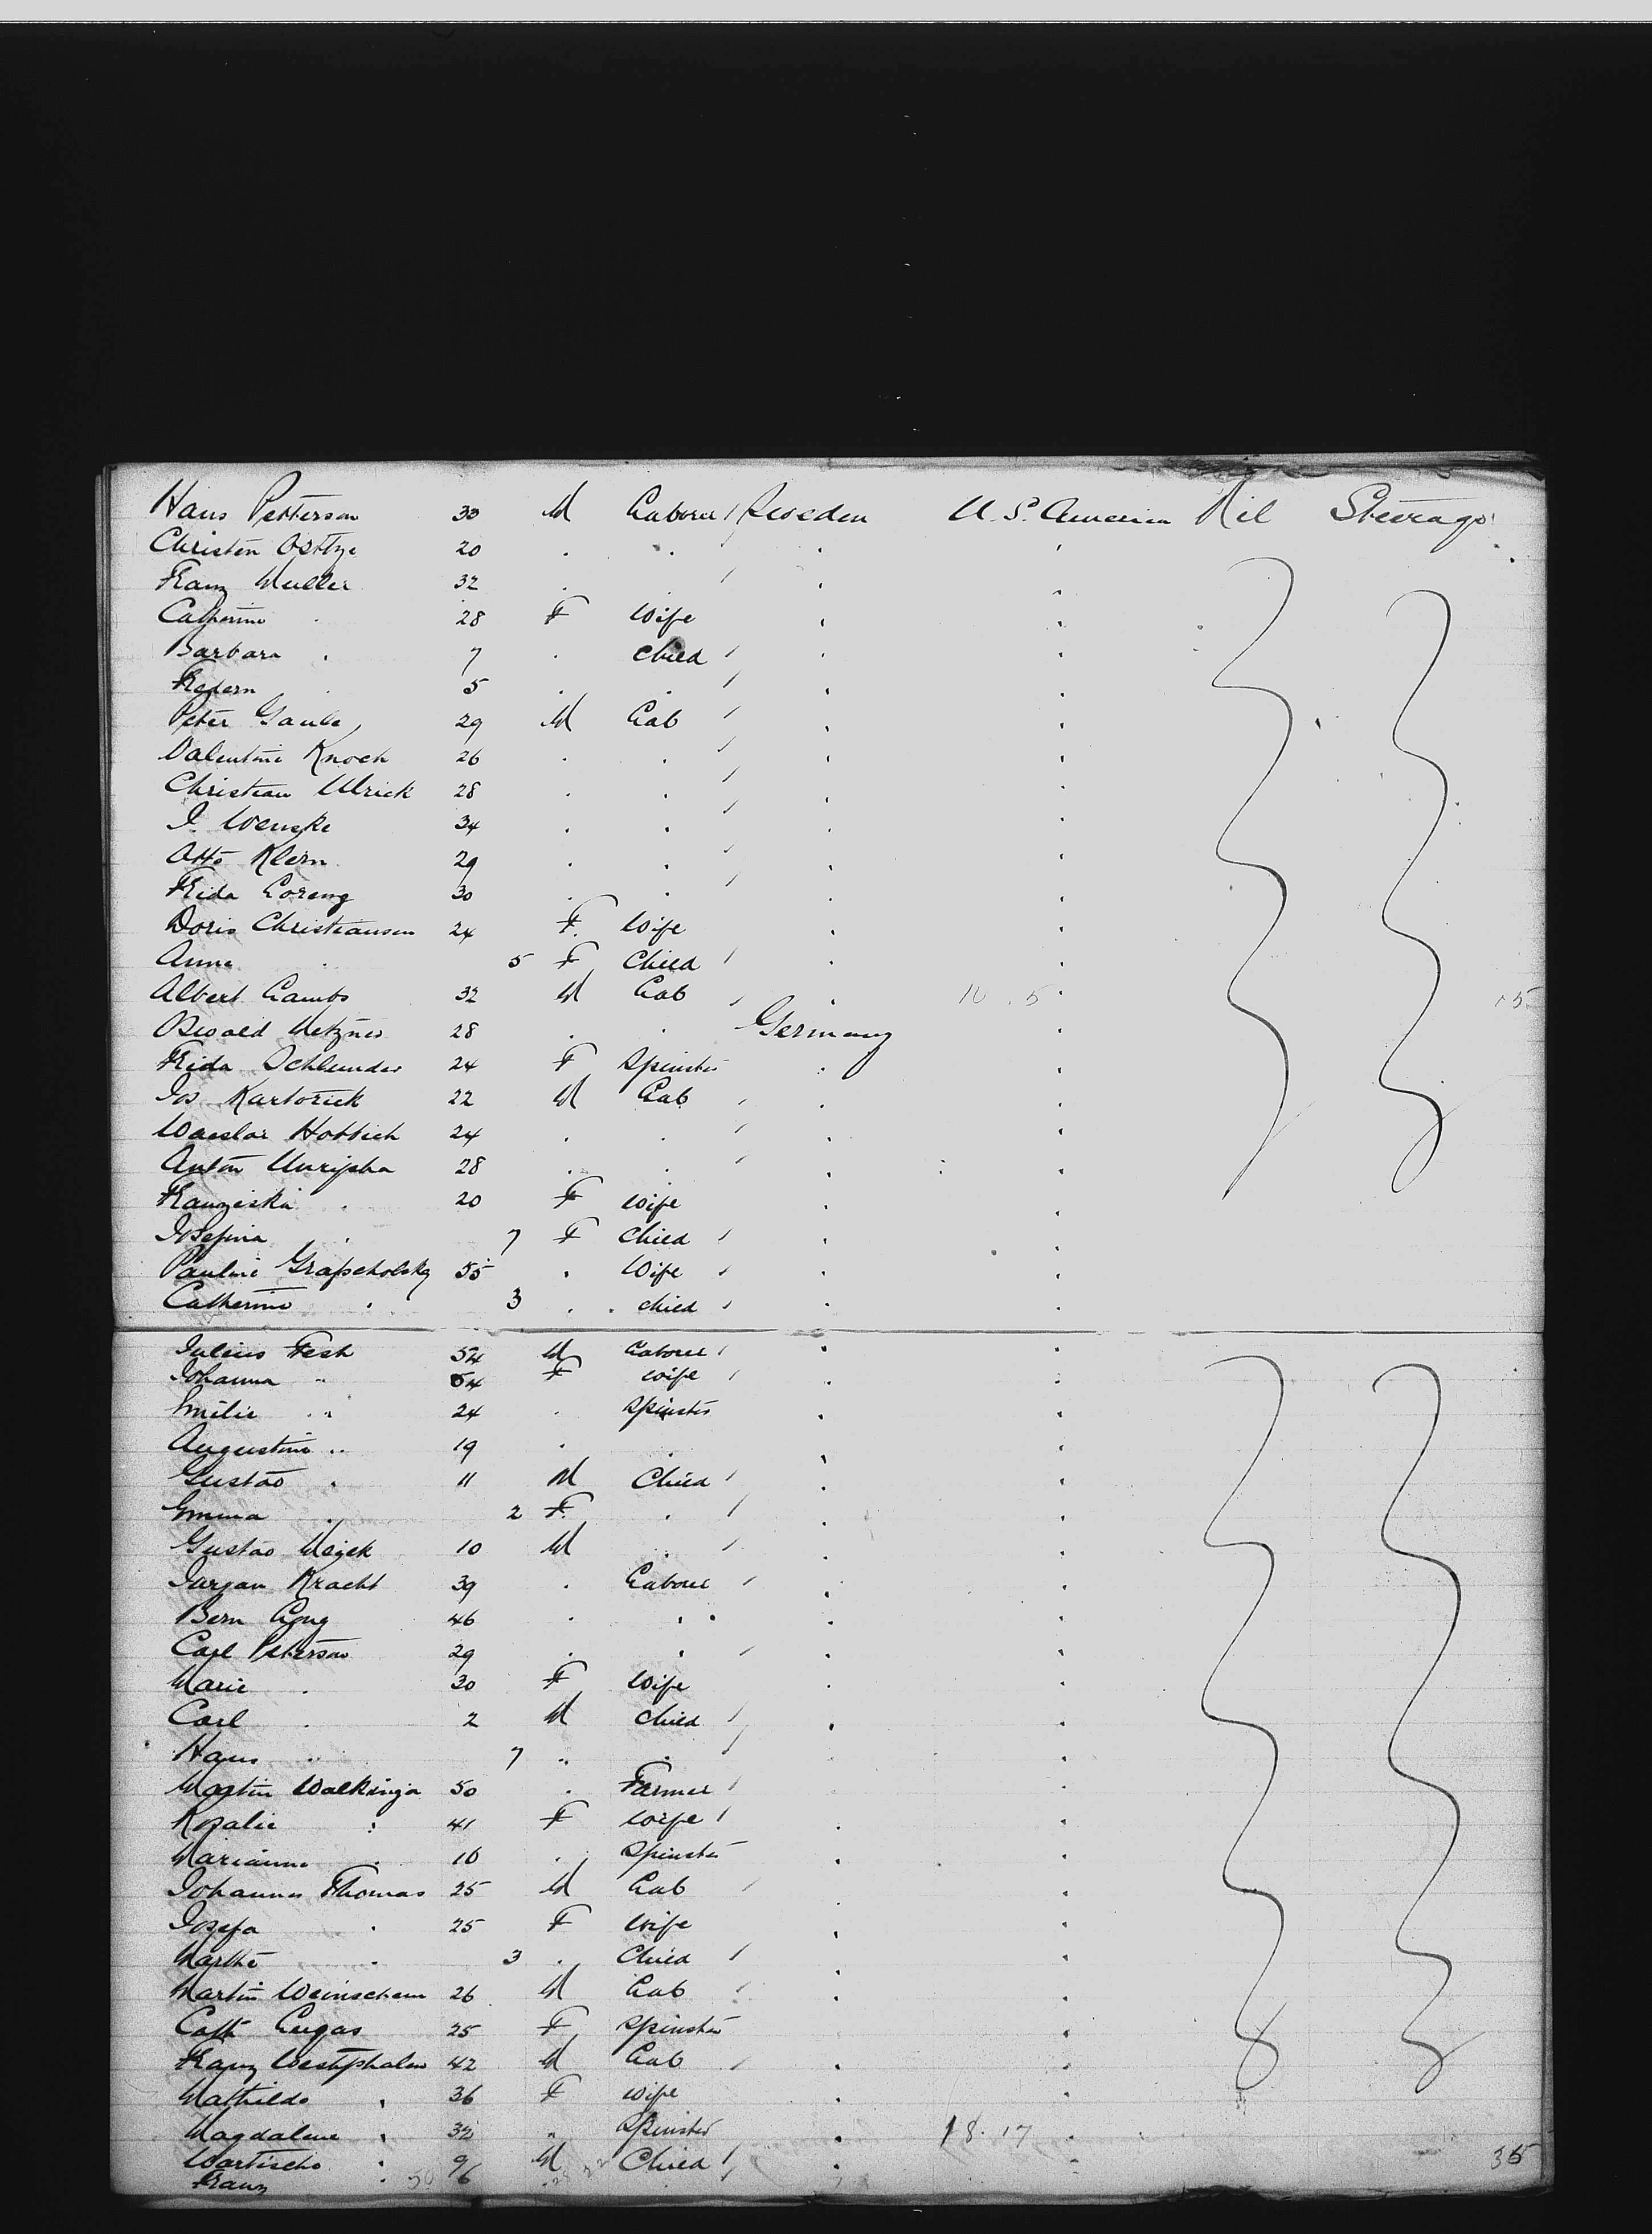 Hans Petterson 33 M Laborer / Sweden U.S. America Nil Steerage
Christen 20 . . . .
Franz Muller 32 . / . .
Catherine . 28 F Wife . .
Barbara . 7 . child / . .
5 . . / . .
Peter Gaule 29 M Lab / . .
Valentine Knoch 26 . . / . .
Christian Ulrick 28 . . / . .
J. Wenske 34 . . / . .
Otto Klern 29 . . / . .
Frida Lorenz 30 . . / . .
Doris Christiansen 24 F Wife . .
Anna . 5 F Child / . .
Albert Lambs 32 M Lab / . 10 . 5 . 15
Oswald Metzner 28 . . Germany .
Frida Schlunder 24 F Spinster . .
Jos 22 M Lab / . .
Hobbich 24 . . / . .
Anton 28 . . / . .
Franziska . 20 F Wife . .
Josefina . 7 F Child / . .
Pauline 55 . Wife / . .
Catherine . 3 . . child / . .
Julius Fesh 54 M Laborer / . .
Johanna " 54 F Wife / . .
Emilie " 24 . Spinster . .
Augustine " 19 . . . .
Gustav . 11 M Child / . .
Emma . 2 F . / . .
Gustav 10 M . / . .
Kracht 39 . Laborer / . .
Bern 46 . . . .
Carl Peterson 29 . . / . .
Marie . 30 F Wife . .
Carl . 2 M child / . .
Hans " 7 " . / .
Martin Walkinga 50 . Farmer / .
Rosalie : 41 F Wife / . .
Marianne . 16 . Spinster . .
Johannes Thomas 25 M Lab / . .
Josefa . 25 F Wife . .
Marthe . 3 . Child / . .
Martin Weinschem 26 M Lab / . .
Cath 25 F Spinster . .
Franz Westphalen 42 M Lab / . .
Mathilde . 36 F Wife . .
Magdalene . 32 " Spinster . 18 . 17 .
. 9 M Child / . . 35
Franz . 6